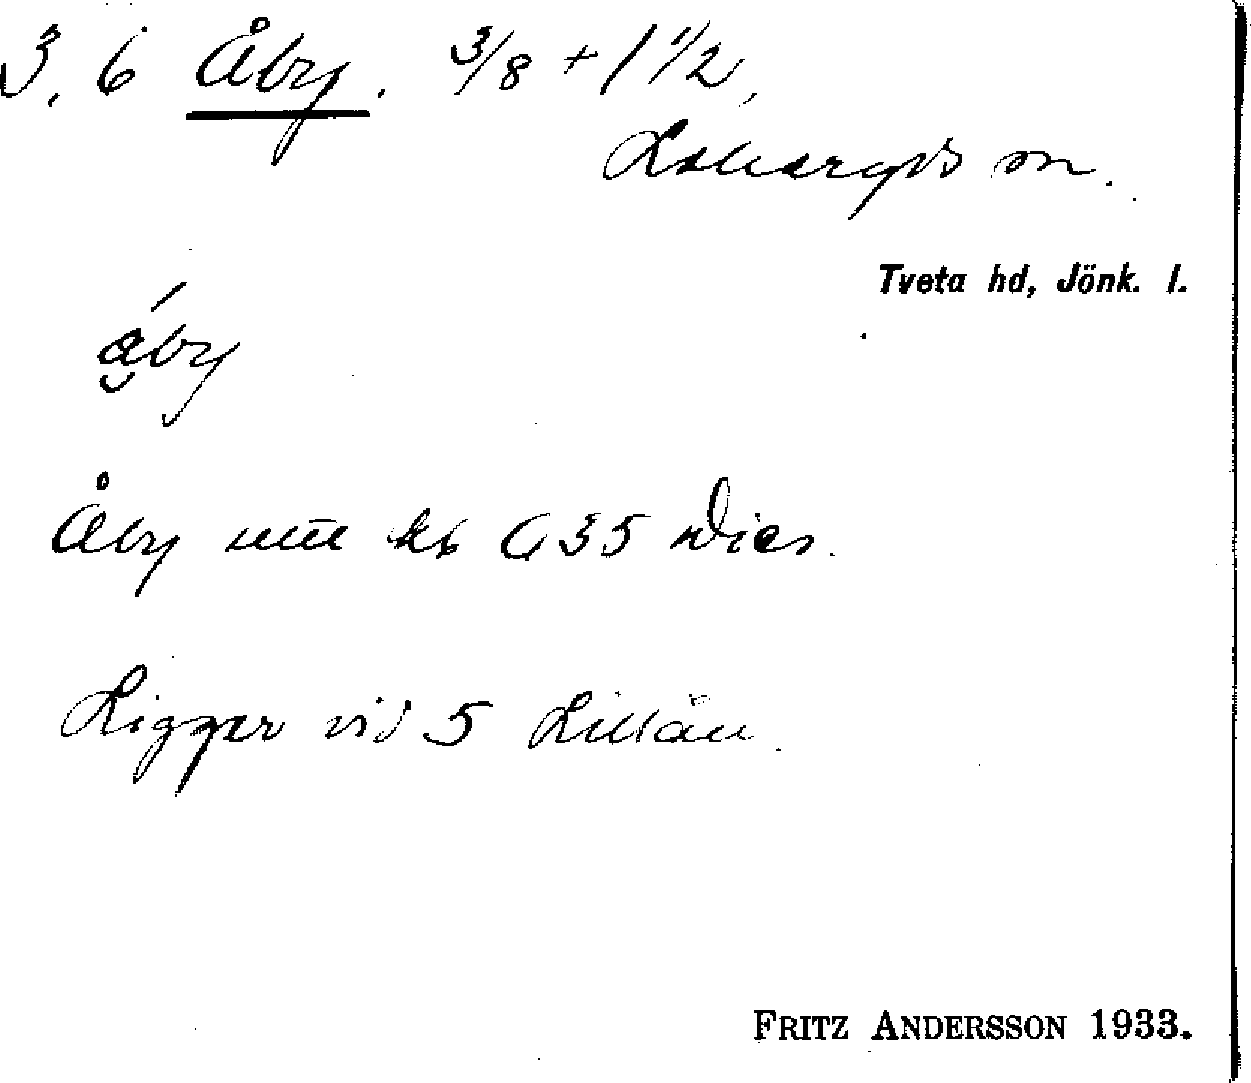 3. 6 Åby. 3/8 + 1 1/2,
Lekeryds sn.
Tveta hd, Jönk. l.
åby
Åby 635 Dics.
Ligger vid 5 Lillån.
FRITZ ANDERSSON 1933.